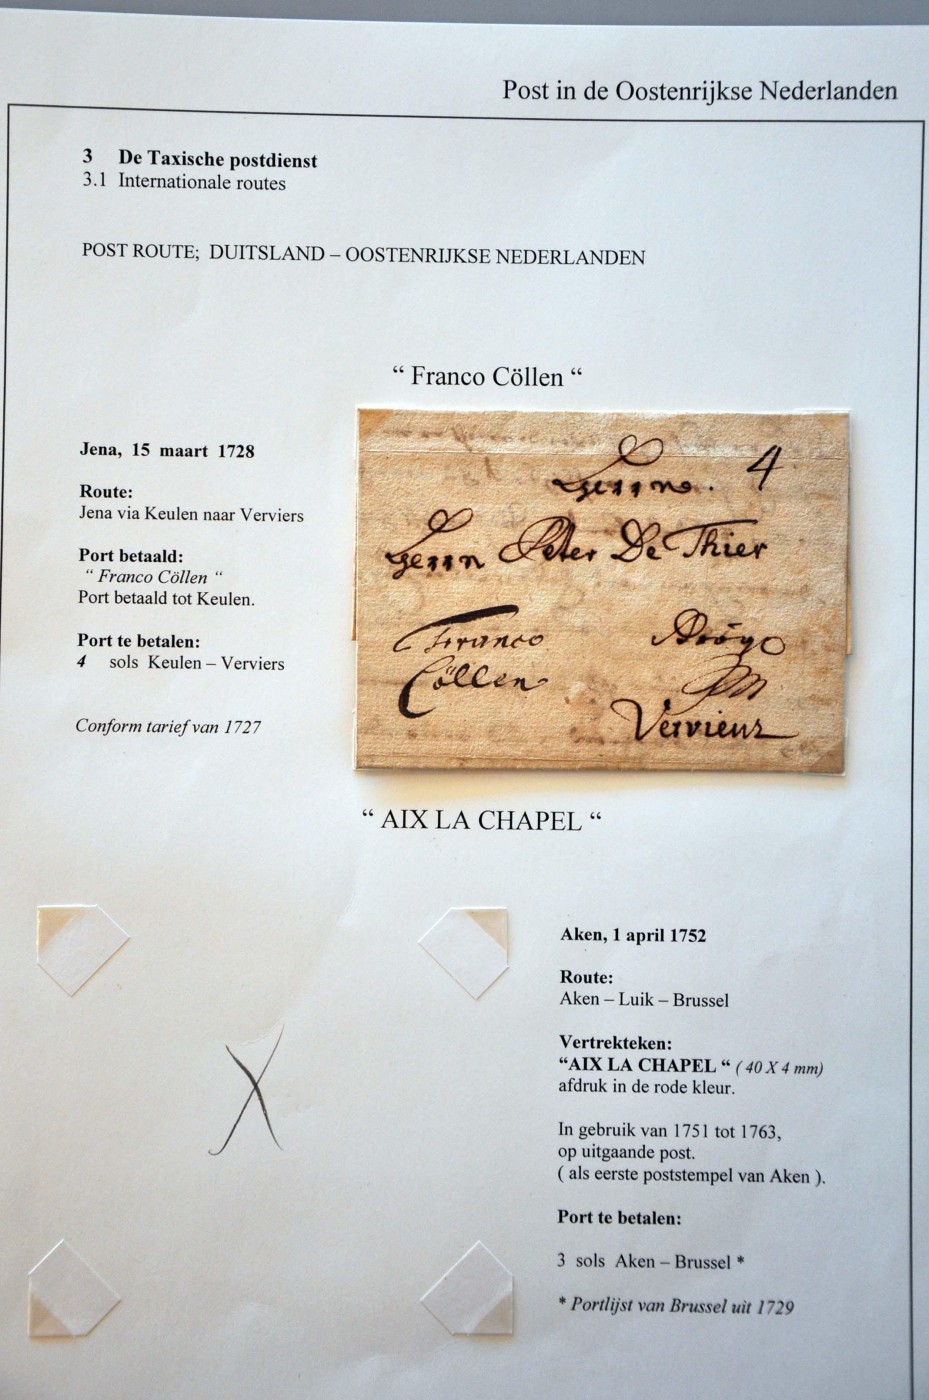 Post in de Oostenrijkse Nederlanden
3 De Taxische postdienst
3.1 Internationale routes
POST ROUTE; DUITSLAND – OOSTENRIJKSE NEDERLANDEN
“ Franco Cöllen “
Jena, 15 maart 1728
Route:
Jena via Keulen naar Verviers
Port betaald:
“ Franco Cöllen “
Port betaald tot Keulen.
Port te betalen:
4 sols Keulen – Verviers
Conform tarief van 1727
4
Herrn Peter De Thier
Franco
Cöllen
Vervieur
“ AIX LA CHAPEL “
Aken, 1 april 1752
Route:
Aken – Luik – Brussel
Vertrekteken:
“AIX LA CHAPEL “ ( 40 X 4 mm)
afdruk in de rode kleur.
In gebruik van 1751 tot 1763,
op uitgaande post.
( als eerste poststempel van Aken ).
Port te betalen:
3 sols Aken – Brussel *
* Portlijst van Brussel uit 1729
X